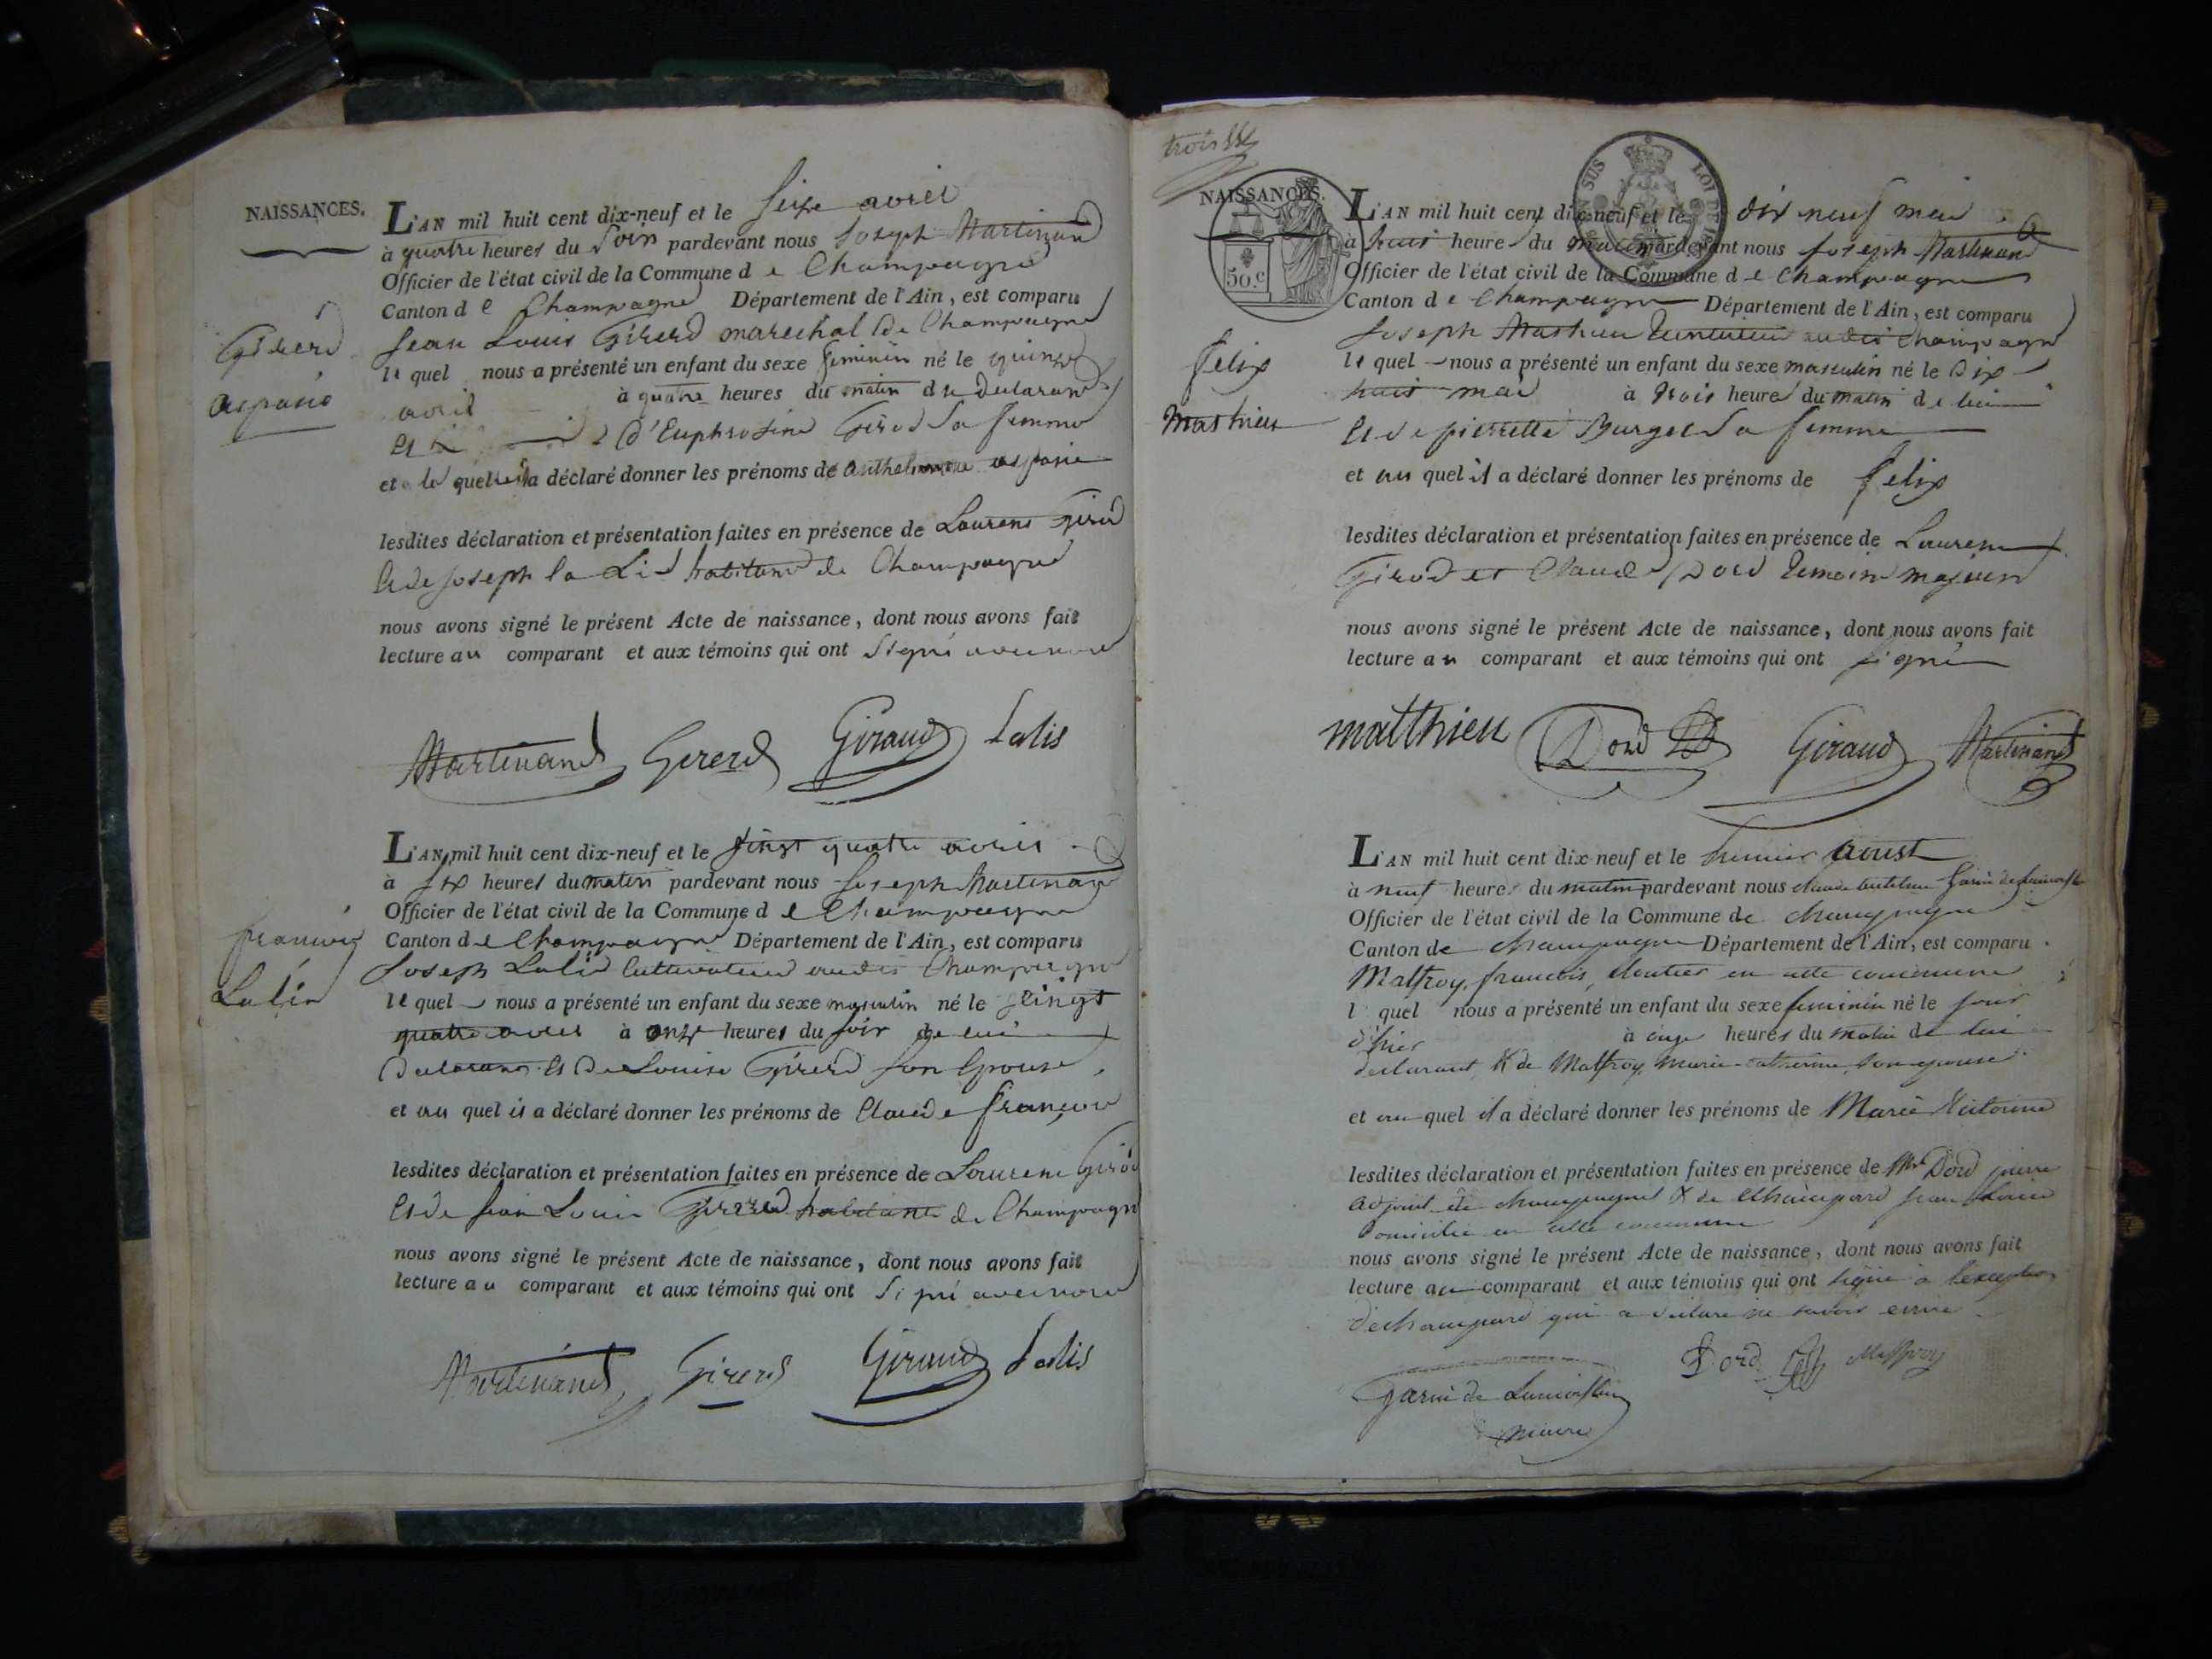 NAISSANCES.
L'AN mil huit cent dix-neuf et le seize avril
à quatre heures du Soir pardevant nous Joseph Martinand
Officier de l'état civil de la Commune d e Champagne
Canton d e Champagne Département de l'Ain, est comparu
Jean Louis Girerd marechal de Champagne
le quel nous a présenté un enfant du sexe feminin né le quinze
avril à quatre heures du matin du declarant
Et d'Euphrosine Girod sa femme
et quel a déclaré donner les prénoms de aspasie
Girerd
aspasie
lesdites déclaration et présentation faites en présence de Laurent Girod
Et de Joseph la Lis habitans de Champagne
nous avons signé le présent Acte de naissance, dont nous avons fait
lecture au comparant et aux témoins qui ont Signé avec nous
Martinand Gererd Giraud Lalis
L'AN mil huit cent dix-neuf et le vingt quatre avril
à six heures du matin pardevant nous Joseph Martinand
Officier de l'état civil de la Commune d e Champagne
Canton d e Champagne Département de l'Ain, est comparu
Joseph Lalis Cultivateur audit Champagne
le quel nous a présenté un enfant du sexe masculin né le vingt
quatre avril à onze heures du soir de lui
declarant Et De Louise Girerd son Epouse
et au quel il a déclaré donner les prénoms de Claude françois
françois
Lalis
lesdites déclaration et présentation faites en présence de Laurent Girod
Et de Jean Louis Girerd habitans de Champagne
nous avons signé le présent Acte de naissance, dont nous avons fait
lecture au comparant et aux témoins qui ont Signé avec nous
Martinand Girerd Giraud Lalis
trois
NAISSANCES.
50.c
SUS LOI DE
L'AN mil huit cent dix-neuf et le dix neuf mai
à huit heures du matin pardevant nous Joseph Martinand
Officier de l'état civil de la Commune d e Champagne
Canton d e Champagne Département de l'Ain, est comparu
Joseph Mathieu audit Champagne
le quel nous a présenté un enfant du sexe masculin né le Dix
huit mai à trois heures du matin de lui
Et de pierrette Burget Sa femme
et au quel il a déclaré donner les prénoms de felix
felix
Mathieu
lesdites déclaration et présentation faites en présence de Laurent
Girod et Claude Dord temoins majeurs
nous avons signé le présent Acte de naissance, dont nous avons fait
lecture au comparant et aux témoins qui ont signé
matthieu Dord Giraud Martinand
L'AN mil huit cent dix-neuf et le premier Aoust
à neuf heures du matin pardevant nous Claude
Officier de l'état civil de la Commune de Champagne
Canton de Champagne Département de l'Ain, est comparu
Malfroy, françois, cloutier en cette commune
l quel nous a présenté un enfant du sexe feminin né le jour
d'hier à onze heures du matin de lui
declarant & de Malfroy, Marie-Catherine, son epouse
et au quel il a déclaré donner les prénoms de Marie Victorine
lesdites déclaration et présentation faites en présence de Mr Dord pierre
adjoint de champagne & de jean Louis
Domicilié en cette commune
nous avons signé le présent Acte de naissance, dont nous avons fait
lecture au comparant et aux témoins qui ont signé à l'exception
qui a declaré ne savoir ecrire
Dord Malfroy
Garin de
Maire